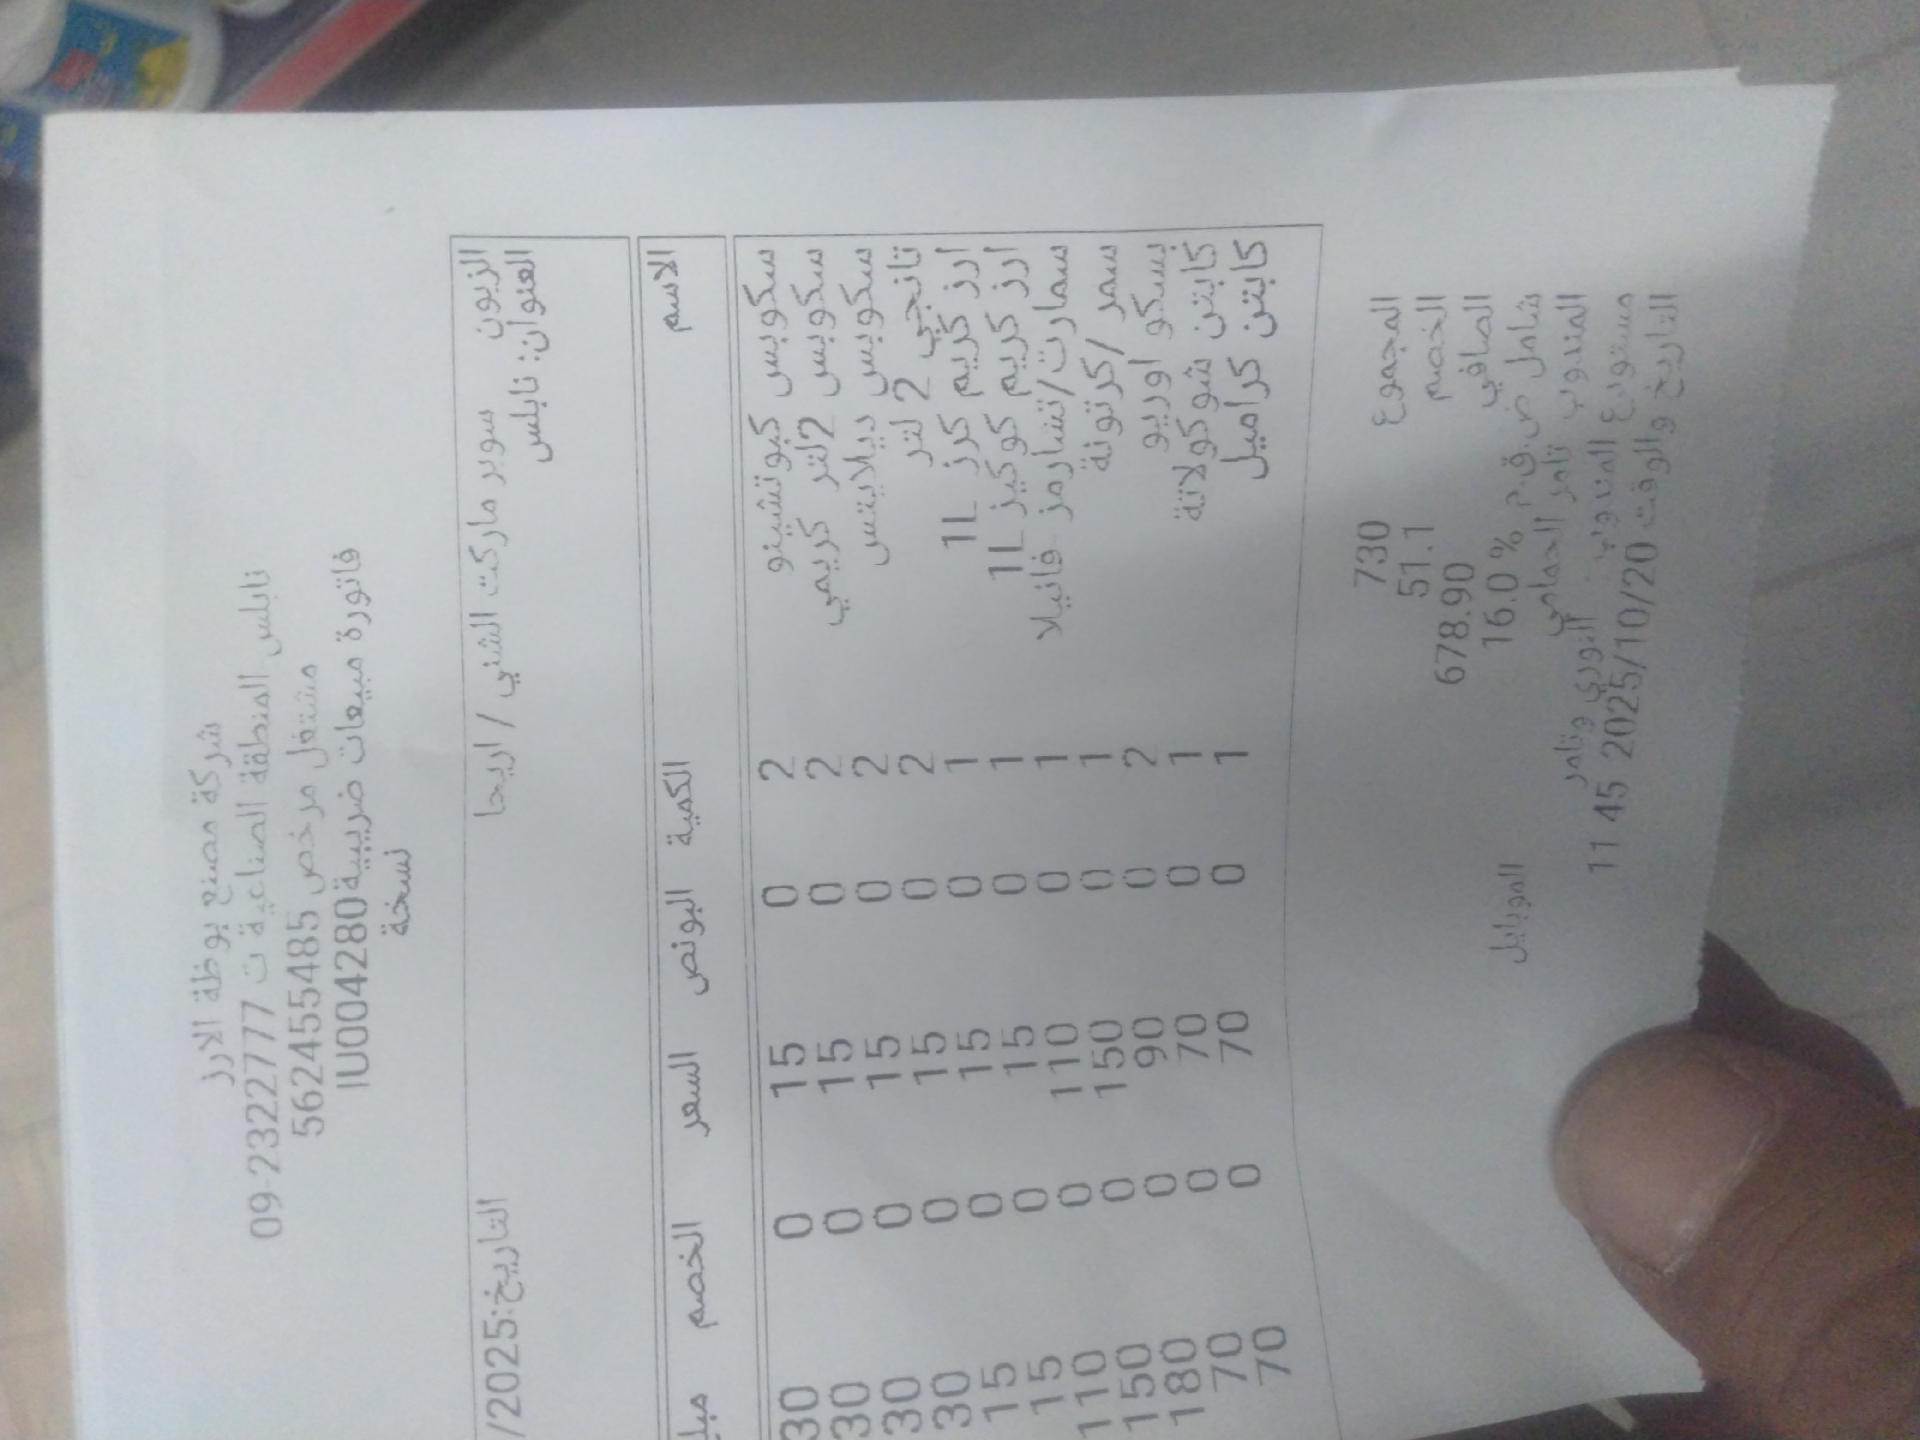 شركة مصنع بوظة الارز
نابلس المنطقة الصناعية ت 09-2322777
مشتغل مرخص 562455485
فاتورة مبيعات ضريبية IU004280
نسخة
الزبون سوبر ماركت الشني / اريحا التاريخ: /2025
العنوان: نابلس
الاسم الكمية البونص السعر الخصم مبل
سكوبس كبوتشينو 2 0 15 0 30
سكوبس 2لتر كريمي 2 0 15 0 30
سكوبس ديلايتس 2 0 15 0 30
تانجي 2 لتر 2 0 15 0 30
ارز كريم كرز 1L 1 0 15 0 15
ارز كريم كوكيز 1L 1 0 15 0 15
سمارت/تشارمز فانيلا 1 0 110 0 110
سمر /كرتونة 1 0 150 0 150
بسكو اوريو 2 0 90 0 180
كابتن شوكولاتة 1 0 70 0 70
كابتن كراميل 1 0 70 0 70
المجموع 730
الخصم 51.1
الصافي 678.90
شامل ض.ق.م % 16.0 الموبايل
المندوب تامر الحمامي
مستودع المندوب : النوري وتامر
التاريخ والوقت 2025/10/20 11 45